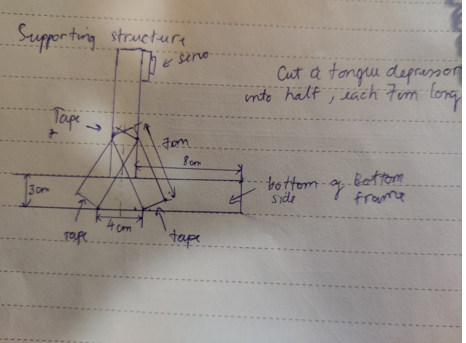 Supporting structure
servo
Cut a tongue depressor
into half, each 7cm long
Tape
7cm
8cm
3cm
bottom of Bottom
side frame
Tape
4cm
tape